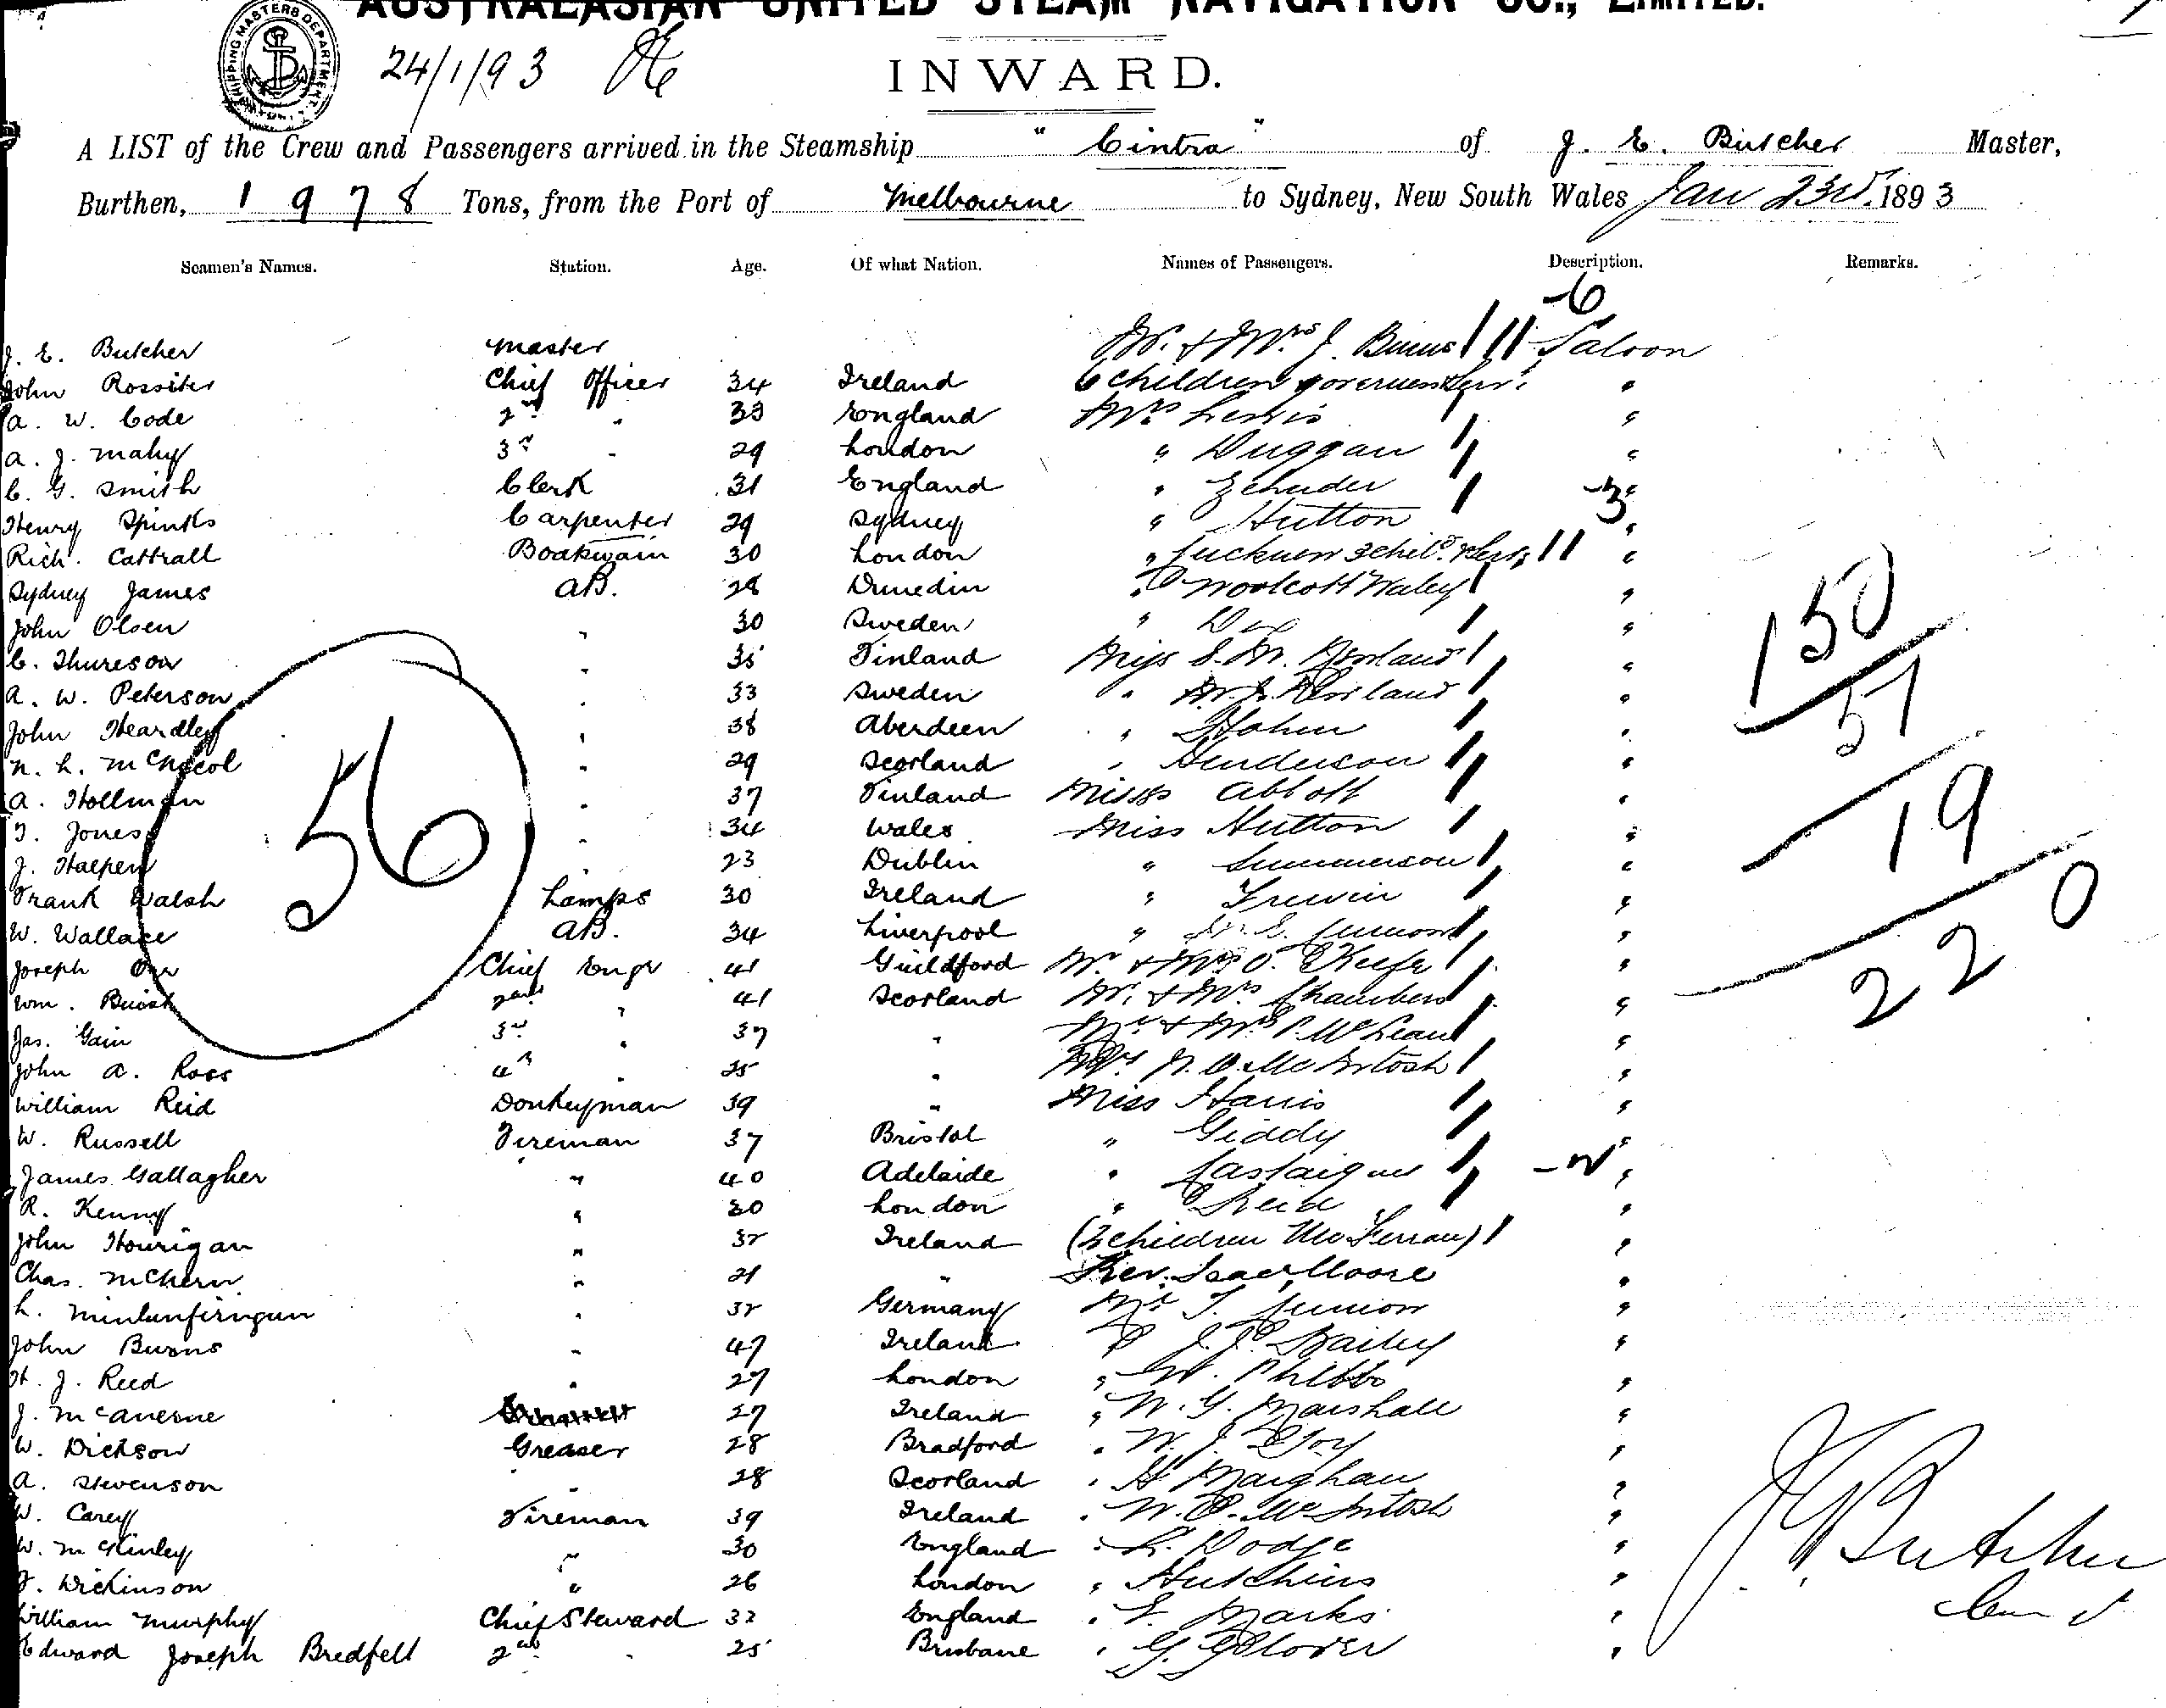 AUSTRALASIAN UNITED STEAM NAVIGATION CO., LIMITED.
SHIPPING MASTERS DEPARTMENT
24/1/93
INWARD.
A LIST of the Crew and Passengers arrived in the Steamship "Cintra" of J. E. Butcher Master,
Burthen, 1978 Tons, from the Port of Melbourne to Sydney, New South Wales Jan 23rd 1893
Seamen's Names. Station. Age. Of what Nation. Names of Passengers. Description. Remarks.
6
J. E. Butcher Master Mr. & Mrs J. Burns Saloon
John Rossiter Chief Officer 34 Ireland 6 children governess & serv. "
A. W. Code 2nd " 33 England Mrs Lewis "
A. J. Mahy 3rd " 29 London " Duggan "
C. G. Smith Clerk 31 England " Zehuder 3 "
Henry Spinks Carpenter 29 Sydney " Hutton "
Rich. Cattrall Boatswain 30 London " 3 chil. "
Sydney James AB. 28 Dunedin " Woolcott Waley "
John Olsen " 30 Sweden " "
C. Thureson " 35 Finland Miss S. M. "
A. W. Peterson " 33 Sweden " "
John Heardley " 38 Aberdeen " Hahn "
N. L. McNicol " 29 Scotland " Henderson "
A. Hollman " 37 Finland Misses Abbott "
T. Jones " 34 Wales Miss Hutton "
J. Halpen " 23 Dublin " Summerson "
Frank Walsh Lamps 30 Ireland " Frewin "
W. Wallace AB. 34 Liverpool " "
Joseph Orr Chief Engr 41 Guildford Mr. & Mrs O. Keefe "
Wm. 2nd " 41 Scotland Mr. & Mrs. Chambers "
Jas. Gain 3rd " 37 " Mr & Mrs P. McLean "
John A. Ross 4th " 25 " McIntosh "
William Reid Donkeyman 39 " Miss Harris "
W. Russell Fireman 37 Bristol " Giddy "
James Gallagher " 40 Adelaide " Castaigne 2 "
R. Kenny " 30 London " Reid "
John Hourigan " 32 Ireland (2 children McFerran) "
Chas. McKern " 21 " Rev. Isaac Moore "
L. " 32 Germany Mr T. "
John Burns " 47 Ireland " J. J. Bailey "
H. J. Reed " 27 London " Phibbs "
J. McAnerne 27 Ireland " W. G. Marshall "
W. Dickson Greaser 28 Bradford " W. J. "
A. Stevenson " 28 Scotland " H. Maughan "
W. Carey Fireman 39 Ireland " McIntosh "
W. McKinley " 30 England " L. Dodge "
J. Dickinson " 26 London " Hutchins "
William Murphy Chief Steward 32 England " Marks "
Edward Joseph Bredfell 2nd " 25 Brisbane " G. Glover "
56
150
51
19
220
J E Butcher